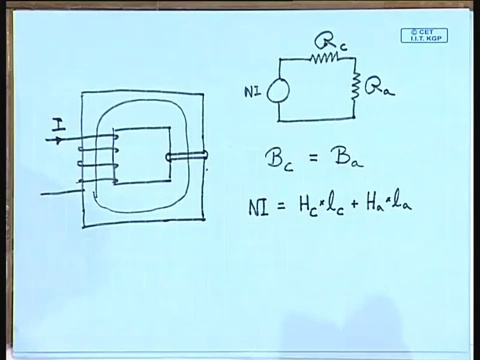 © CET
I.I.T. KGP
I
NI
R_c
R_a
B_c = B_a
NI = H_c*l_c + H_a*l_a